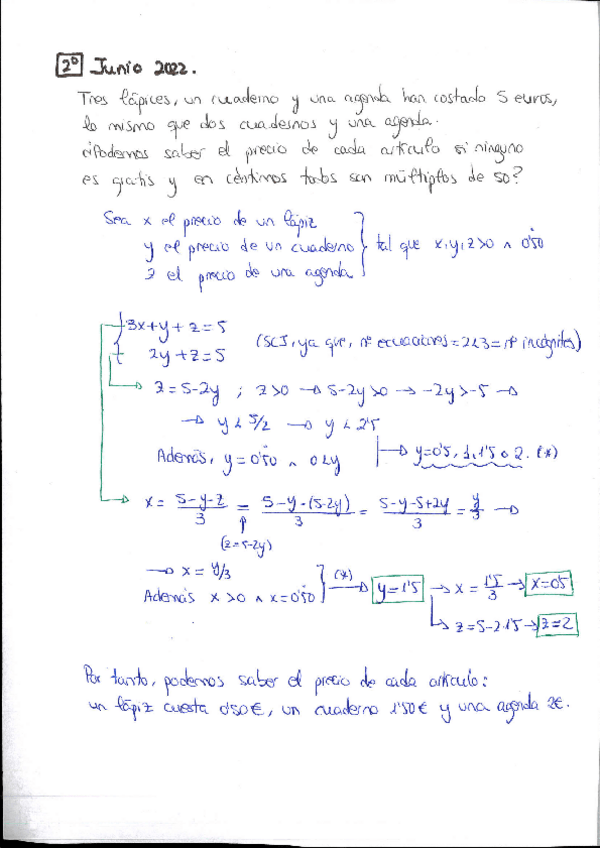 2º Junio 2022.
Tres lápices, un cuaderno y una agenda han costado 5 euros,
lo mismo que dos cuadernos y una agenda.
¿Podemos saber el precio de cada artículo si ninguno
es gratis y en céntimos todos son múltiplos de 50?
Sea x el precio de un lápiz
y el precio de un cuaderno } tal que x,y,z>0 ∧ 0'50
z el precio de una agenda
3x+y+z=5
2y+z=5 (SCI, ya que, nº ecuaciones=2<3=nº incógnitas)
z=5-2y ; z>0 → 5-2y>0 → -2y>-5 →
→ y < 5/2 → y < 2'5
Además, y=0'50 ∧ 0<y → y=0'5, 1, 1'5 o 2. (*)
x = (5-y-z)/3 = (5-y-(5-2y))/3 = (5-y-5+2y)/3 = y/3 →
(z=5-2y)
→ x = y/3
Además x>0 ∧ x=0'50 } (*) → y=1'5 → x = 1'5/3 → x=0'5
→ z=5-2·1'5 → z=2
Por tanto, podemos saber el precio de cada artículo:
un lápiz cuesta 0'50€, un cuaderno 1'50€ y una agenda 2€.